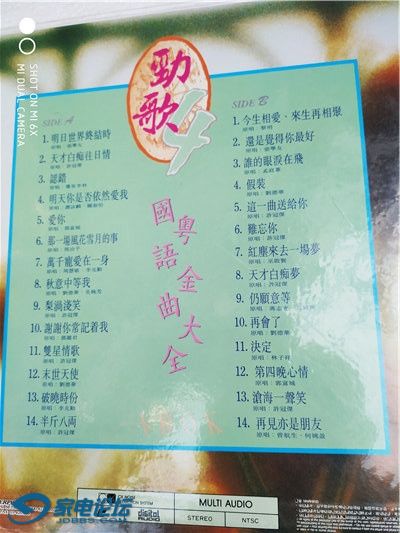 SHOT ON MI 6X
MI DUAL CAMERA
勁歌 4
國粵語金曲大全
SIDE A
1. 明日世界終結時
原唱：張學友
2. 天才白痴往日情
原唱：許冠傑
3. 認錯
4. 明天你是否依然愛我
5. 愛你
6. 那一場風花雪月的事
7. 萬千寵愛在一身
8. 秋意中等我
9. 梨渦淺笑
原唱：許冠傑
10. 謝謝你常記着我
11. 雙星情歌
原唱：許冠傑
12. 末世天使
原唱：劉德華
13. 破曉時份
原唱：李克勤
14. 半斤八両
原唱：許冠傑
SIDE B
1. 今生相愛，來生再相聚
原唱：黎明
2. 還是覺得你最好
原唱：張學友
3. 誰的眼淚在飛
原唱：孟庭葦
4. 假裝
原唱：劉德華
5. 這一曲送給你
原唱：許冠傑
6. 難忘你
原唱：許冠傑
7. 紅塵來去一場夢
原唱：巫啟賢
8. 天才白痴夢
原唱：許冠傑
9. 仍願意等
10. 再會了
原唱：劉德華
11. 決定
原唱：林子祥
12. 第四晚心情
原唱：郭富城
13. 滄海一聲笑
原唱：許冠傑
14. 再見亦是朋友
原唱：曾航生、何婉盈
CX NOISE
REDUCTION SYSTEM
digital
AUDIO
MULTI AUDIO
STEREO
NTSC
家电论坛
JDBBS.COM